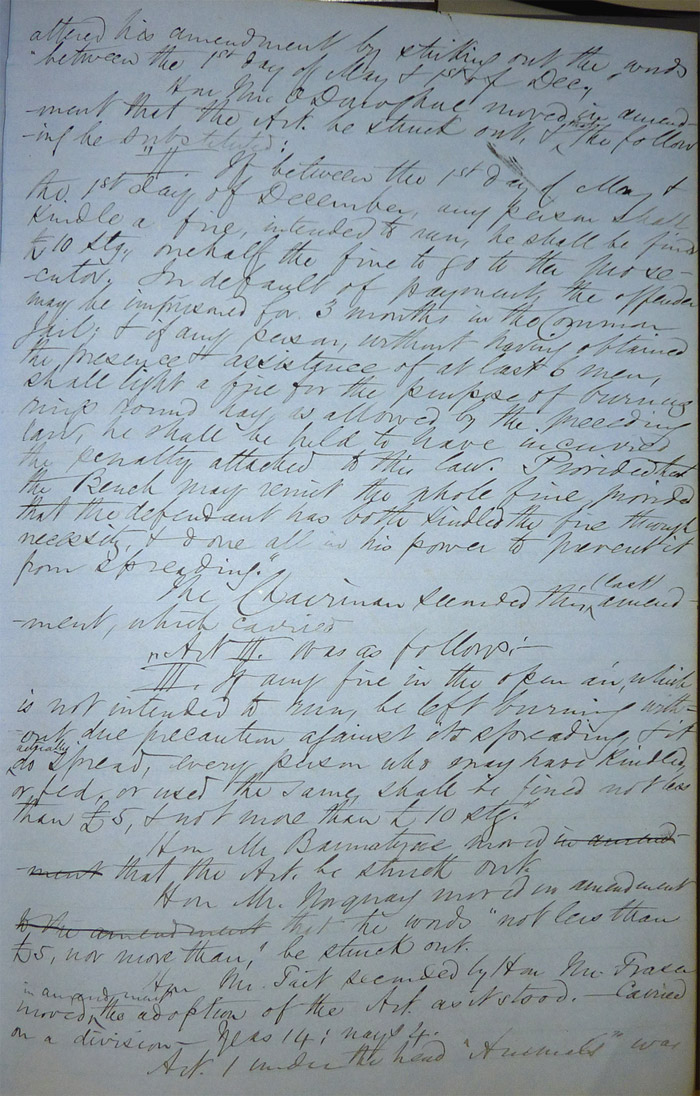 altered his amendment by striking out the words
"between the 1st day of May & 1st of Dec.,
Hon Mr. O'Donoghue moved in amend-
-ment that the Art. be struck out, & that the follow
-ing be substituted:
"II If between the 1st day of May &
the 1st day of December, any person shall
kindle a fire, intended to run, he shall be fined
£10 stg., one half the fine to go to the prose-
-cutor. In default of payment, the offender
may be imprisoned for 3 months in the Common
Jail; & if any person, without having obtained
the presence & assistance of at least 6 men,
shall light a fire for the purpose of burning
rings round hay as allowed by the preceding
law, he shall be held to have incurred
the penalty attached to this law. Provided that
the Bench may remit the whole fine, provided
that the defendant has both kindled the fire through
necessity, & done all in his power to prevent it
from spreading."
The Chairman seconded this last amend-
-ment, which carried
Art III. was as follows:-
III. If any fire in the open air, which
is not intended to run, be left burning with-
-out due precaution against its spreading, & it
do actually spread, every person who may have kindled,
or fed, or used the same, shall be fined not less
than £5, & not more than £10 stg."
Hon Mr. Bannatyne moved in amend-
-ment that the Art. be struck out.
Hon Mr. Norquay moved in amendment
to the amendment that the words "not less than
£5, nor more than," be struck out.
Hon Mr. Tait seconded by Hon Mr. Fraser
moved, in amendment the adoption of the Art. as it stood. - Carried
on a division - Yeas 14; nays 4.
Art. 1 under the head "Animals" was